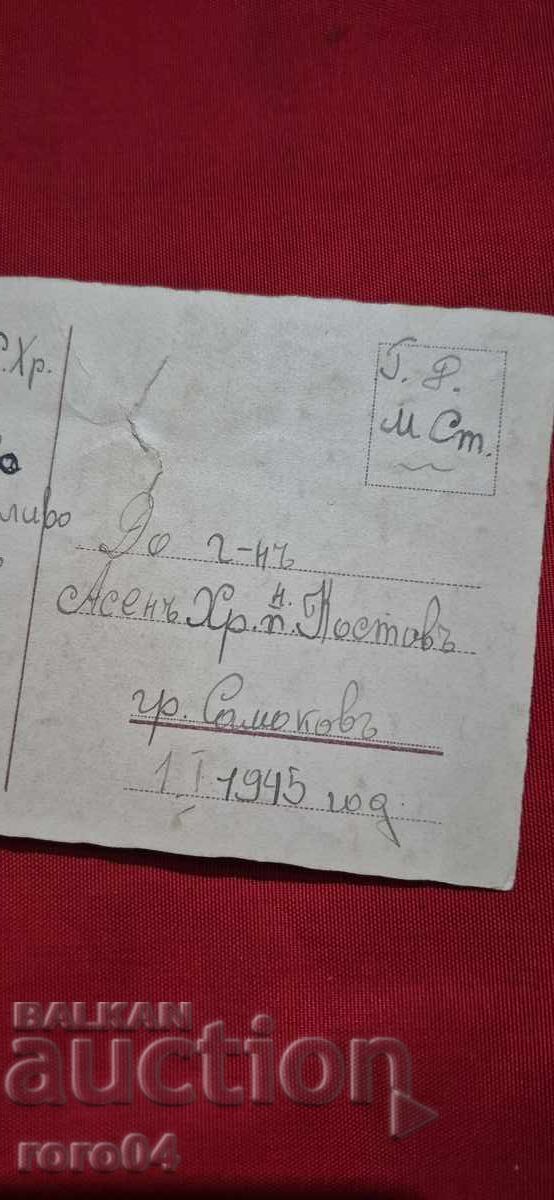 Хр.
Г. Ф.
М Ст.
До г-нъ
Асенъ Хр. п. н. Костовъ
гр. Самоковъ
1. I 1945 год.
BALKAN
auction
roro04